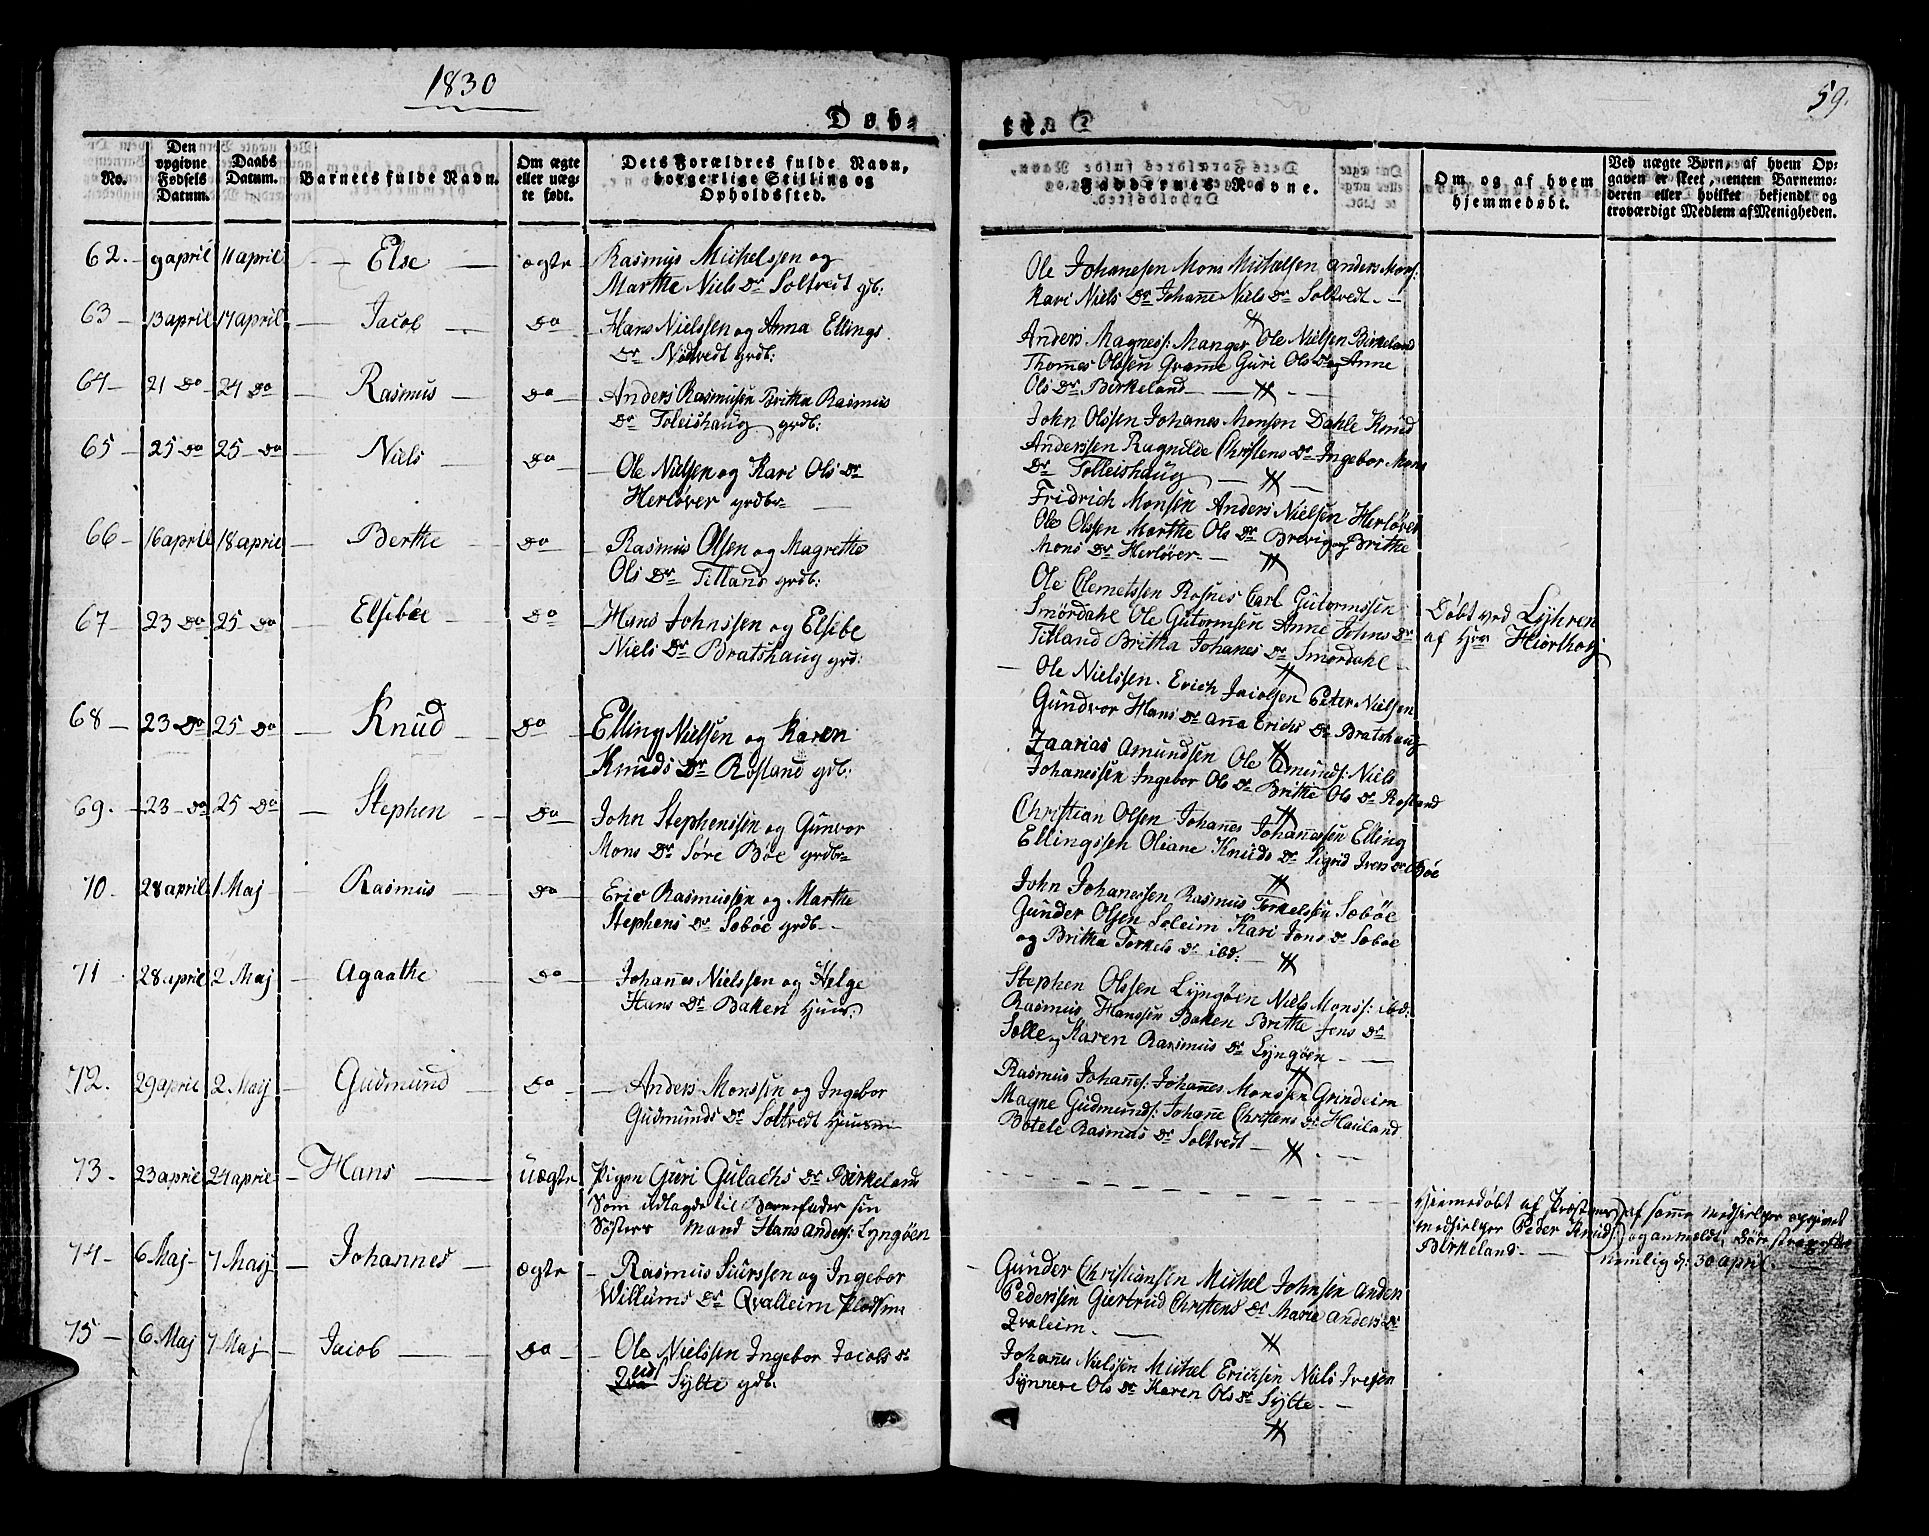 1830
59.
Døb-
te.
No.
Den opgivne Fødsels Datum.
Daabs Datum.
Barnets fulde Navn.
Om ægte eller uægte født.
Dets Forældres fulde Navn, borgerlige Stilling og Opholdssted.
Faddernes Navne.
Om, og af hvem hjemmedøbt.
Ved uægte Børn, af hvem Opgaven er skeet, enten Barnemoderen eller hvilket bekjendt og troværdigt Medlem af Menigheden.
62. 9 april 11 april Else ægte Rasmus Michelssen og
Marthe Niels Dr Soltvedt gdb:
Ole Johanesen Mons Michelsen Anders Mons:
Kari Niels Dr Johanne Niels Dr Soltvedt.
63 13 april 17 april Jacob Do Hans Nielssen og Anna Ellings
Dr Nødtvedt grdb:
Anders Magness: Manger Ole Nielsen Birkeland
Thomes Olssen Grame Guri Ols Dr og Anne
Ols Dr Birkeland
64 21 Do 24 Do Rasmus Do Anders Rasmusen Britha Rasmus
Dr Toleishaug grdb:
John Olssen Johanes Monsen Dahle Knud
Anderssen Ragnilde Christens Dr Ingebor Mons
Dr Tolleishaug
65 25 Do 25 Do Niels Do Ole Nielsen og Kari Ols Dr
Herløver grdbr
Fridrich Monsen Anders Nielsen Herløver
Ole Olssen Marthe Ols Dr Brevig og Brithe
Mons Dr Herløver
66 16 april 18 april Berthe Do Rasmus Olsen og Magrethe
Ols Dr Titland grdb:
Ole Clemetssen Rosnes Carl Gutormssen
Smørdahl Ole Gutormsen Anne Johns Dr
Titland Britha Johanes Dr Smørdahl
67 23 Do 25 Do Elsebee Do Hans Johnssen og Elsebe
Niels Dr Bratshaug grd:
Ole Nielssen. Erich Jacobsen Peter Nielsen
Gundvor Hans Dr Anna Erichs Dr Bratshaug
Døbt ved Lyhren
af Hrr Hiorthoj
68 23 Do 25 Do Knud Do Elling Nielsen og Karen
Knuds Dr Rosland gdb:
Zaarias Amundsen Ole Amunds: Niels
Johanessen Ingebor Ols Dr Brithe Ols Dr Rosland
69. 23 Do 25 Do Stephen Do John Stephenssen og Gunvor
Mons Dr Søre Bøe grdbr
Christian Olsen Johanes Johanessen Elling
Ellingssen Oliane Knuds Dr Sigrid Ivers Dr Bøe
70 28 april 1 Maj Rasmus Do Eric Rasmussen og Marthe
Stephens Dr Sebøe grdb.
John Johanessen Rasmus Torkelssen Sæbøe
Gunder Olsen Soleim Kari Jons Dr Sebøe
og Britha Torkels Dr ibd:
71 28 april 2 Maj Agaathe Do Johanes Nielssen og Helge
Hans Dr Bakken Huus.
Stephen Olssen Lyngøen Niels Monss: ibd:
Rasmus Hanssen Bakken Brithe Jens Dr
Solle og Karen Rasmus Dr Lyngøen
72. 29 april 2 Maj Gudmund Do Anders Monssen og Ingebor
Gudmunds Dr Soltvedt Huusm
Rasmus Johanes: Johanes Monssen Grindeim
Magne Gudmunds: Johanne Christens Dr Hauland
Botele Rasmus Dr Soltvedt
73 23 april 24 april Hans uægte Pigen Guri Gulachs Dr Birkeland
Som udlagde til Barnefader sin
Søsters Mand Hans Anders: Lyngøen
Hiemedøbt af Præstens
Medhielper Peder Knuds:
Birkeland.
af samme Medhielper opgivet
og anmeldt. Døde strax efter
nemlig d: 30 april
74 6 Maj 7 Maj Johannes ægte Rasmus Siurssen og Ingebor
Willums Dr Qvalleim Pladsm
Gunder Christiansen Michel Johnsen Anders
Pederssen Giertrud Christens Dr Marie Anders Dr
Qvaleim.
75 6 Maj 7 Maj Jacob Do Ole Nielssen Ingebor Jacobs Dr
Sylte gdb.
Johanes Nielssen Michel Ericksen Niels Iversen
Synneve Ols Dr Karen Ols Dr Sylte.